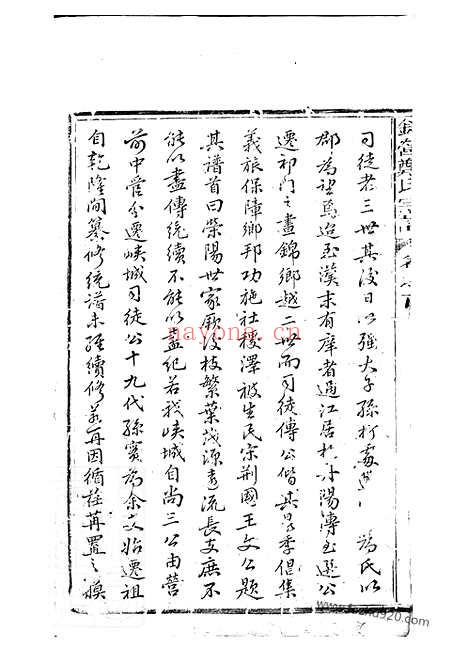 司徒者三世其後日以強大子孫
為氏以
郡為望焉迨至漢末有庠者過江居於丹陽傳至選公
遷祁門之晝錦鄉越二世而司徒傳公偕其昆季倡集
義旅保障鄉邦功施社稷澤被生民宋荊國王文公題
其譜首曰榮陽世家厥後枝繁葉茂源遠流長支庶不
能以盡傳統續不能以盡紀若我峽城自尚三公由營
前中營分遷峽城司徒公十九代孫實為余支始遷祖
自乾隆間纂修統譜未經續修若再因循荏苒置之
nayong.cn
www.shuge.org